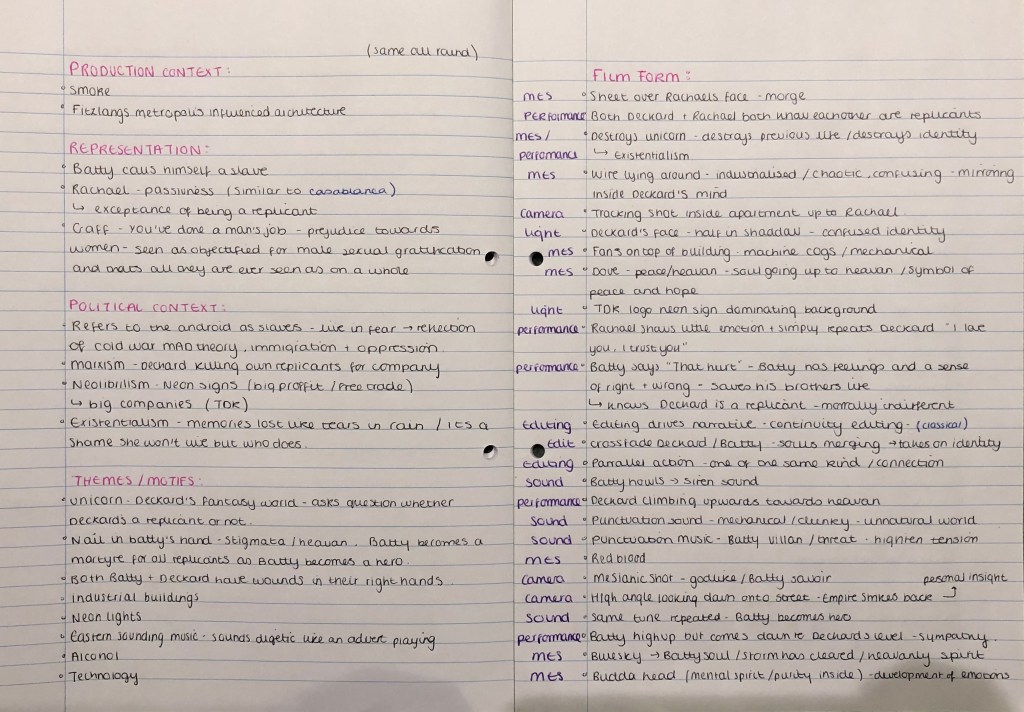 (same all round)
PRODUCTION CONTEXT:
° Smoke
° Fitzlangs metropolis influenced architecture
REPRESENTATION:
° Batty calls himself a slave
° Rachael - passivness (similar to casablanca)
↳ exceptance of being a replicant
° Graff - you've done a man's job - prejudice towards
women - seen as objectified for male sexual gratification
and thats all they are ever seen as on a whole
POLITICAL CONTEXT:
° Refers to the android as slaves - live in fear → reflection
of cold war MAD theory, immigration + oppression
° Marxism - Deckard killing own replicants for company
° Neolibrilism - Neon signs (big proffit / free trade)
↳ big companies (TDK)
° Existentialism - memories lost like tears in rain / its a
shame she won't live but who does.
THEMES / MOTIFS:
° Unicorn - Deckard's fantasy world - asks question whether
Deckard's a replicant or not.
° Nail in batty's hand - stigmata / heavan. Batty becomes a
martyre for all replicants as Batty becomes a hero.
° Both Batty + Deckard have wounds in their right hands
° Industrial buildings
° Neon lights
° Eastern sounding music - sounds digetic like an advert playing
° Alcohol
° Technology
FILM FORM:
mes ° Sheet over Rachaels face - morge
PERFORMANCE ° Both Deckard + Rachael both know eachother are replicants
mes / ° Destroys unicorn - destroys previous life / destroys identity
perfomance ↳ Existentialism
mes ° Wire lying around - industrialised / chaotic, confusing - mirroring
inside Deckard's mind
camera ° Tracking shot inside apartment up to Rachael
light ° Deckard's face - half in shaddow - confused identity
mes ° Fans on top of building - machine cogs / mechanical
mes ° Dove - peace/heavan - soul going up to heavan / symbol of
peace and hope
light ° TDK logo neon sign dominating background
performance ° Rachael shows little emotion + simply repeats Deckard "I love
you, I trust you"
performance ° Batty says "That hurt" - Batty has feelings and a sense
of right + wrong - saves his brothers life
↳ knows Deckard is a replicant - morrally indifferent
Editing ° Editing drives narrative - continuity editing - (classical)
Edit ° crossfade Deckard / Batty - souls merging → takes on identity
editing ° Parrallel action - one of one same kind / connection
sound ° Batty howls → siren sound
performance ° Deckard climbing upwards towards heavan
sound ° Punctuation sound - mechanical / clunky - unnatural world
sound ° Punctuation music - Batty villan / threat - highten tension
mes ° Red blood
camera ° Mesianic shot - godlike / Batty savoir
personal insight
camera ° High angle looking down onto street - Empire strikes back
sound ° Same tune repeated - Batty becomes hero
performance ° Batty high up but comes down to Deckards level - sympathy.
mes ° Bluesky → Batty soul / storm has cleared / heavanly spirit
mes ° Budda head (mental spirit / purity inside) - development of emotions